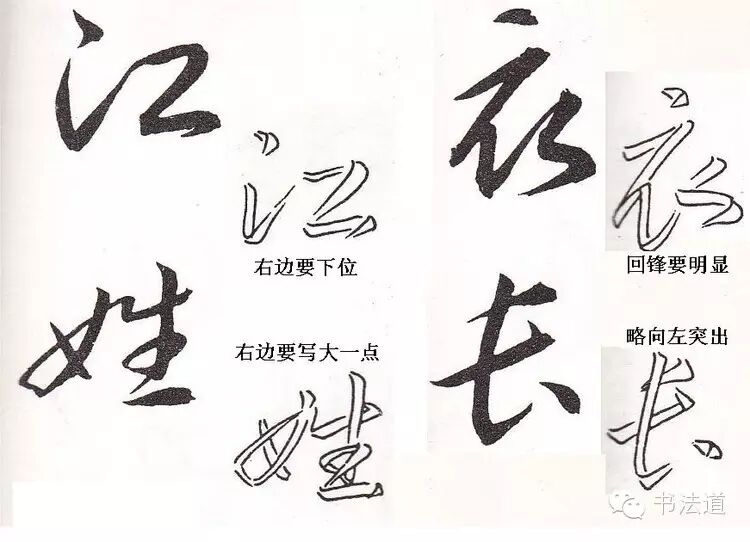 江
江
右边要下位
衣
衣
回锋要明显
姓
右边要写大一点
姓
长
略向左突出
长
书法道